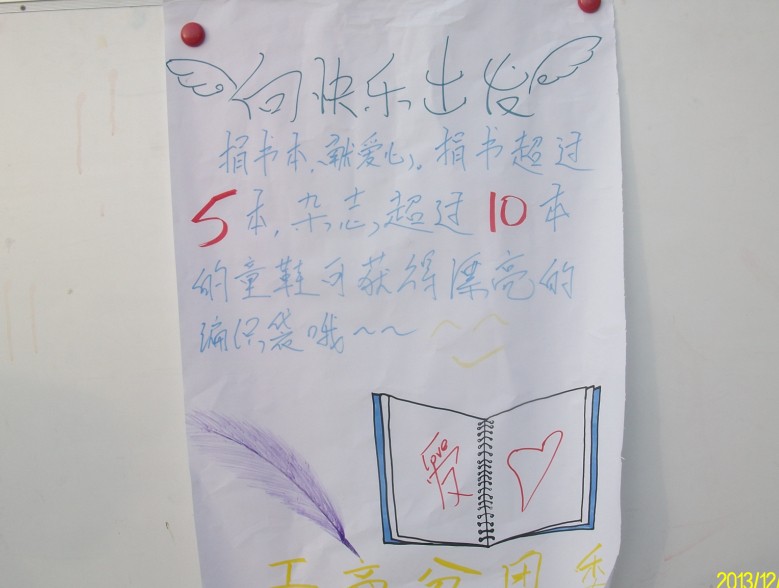 向快乐出发
捐书本,献爱心,捐书超过
5本,杂志,超过10本
的童鞋可获得漂亮的
编织袋哦~~
love
爱
工商分团委
2013/12